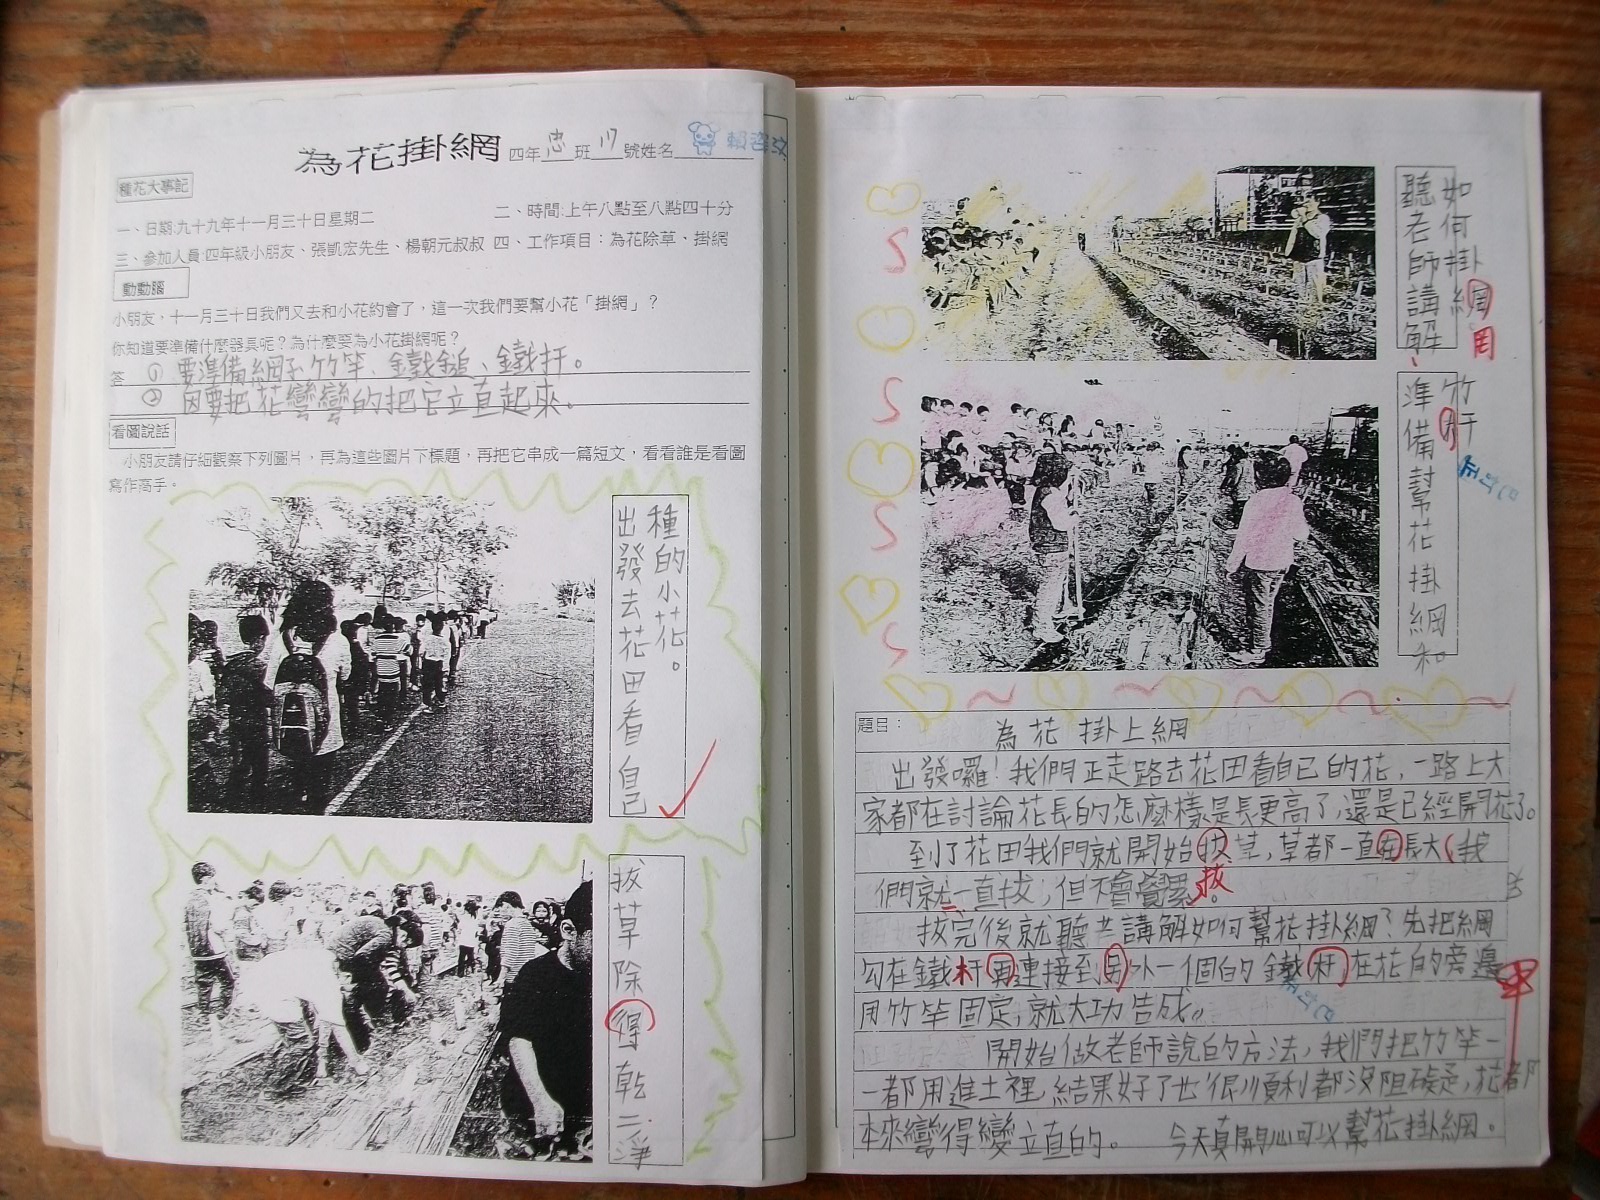 為花掛網 四年忠班17號姓名 賴
種花大事記
一、日期:九十九年十一月三十日星期二 二、時間:上午八點至八點四十分
三、參加人員:四年級小朋友、張凱宏先生、楊朝元叔叔 四、工作項目：為花除草、掛網
動動腦
小朋友，十一月三十日我們又去和小花約會了，這一次我們要幫小花「掛網」？
你知道要準備什麼器具呢？為什麼要為小花掛網呢？
答 ① 要準備網子、竹竿、鐵鎚、鐵扞。
② 因要把花彎彎的把它立直起來。
看圖說話
小朋友請仔細觀察下列圖片，再為這些圖片下標題，再把它串成一篇短文，看看誰是看圖
寫作高手。
出發去花田看自己
種的小花。
拔草除得乾二淨
聽老師講解
如何掛網
網
準備幫花掛網和
竹干。
題目： 為花掛上網
出發囉！我們正走路去花田看自己的花，一路上大
家都在討論花長的怎麼樣是長更高了，還是已經開花了。
到了花田我們就開始拔草，草都一直在長大，我
拔
們就一直拔，但不會覺累。
拔完後就聽老講解如何幫花掛網？先把網
勾在鐵杆再連接到另外一個的鐵杆在花的旁邊
用竹竿固定，就大功告成。
開始做老師說的方法，我們把竹竿一
一都用進土裡，結果好了也很順利都沒阻礙是，花都
本來彎得變立直的。 今天真開心可以幫花掛網。
甲